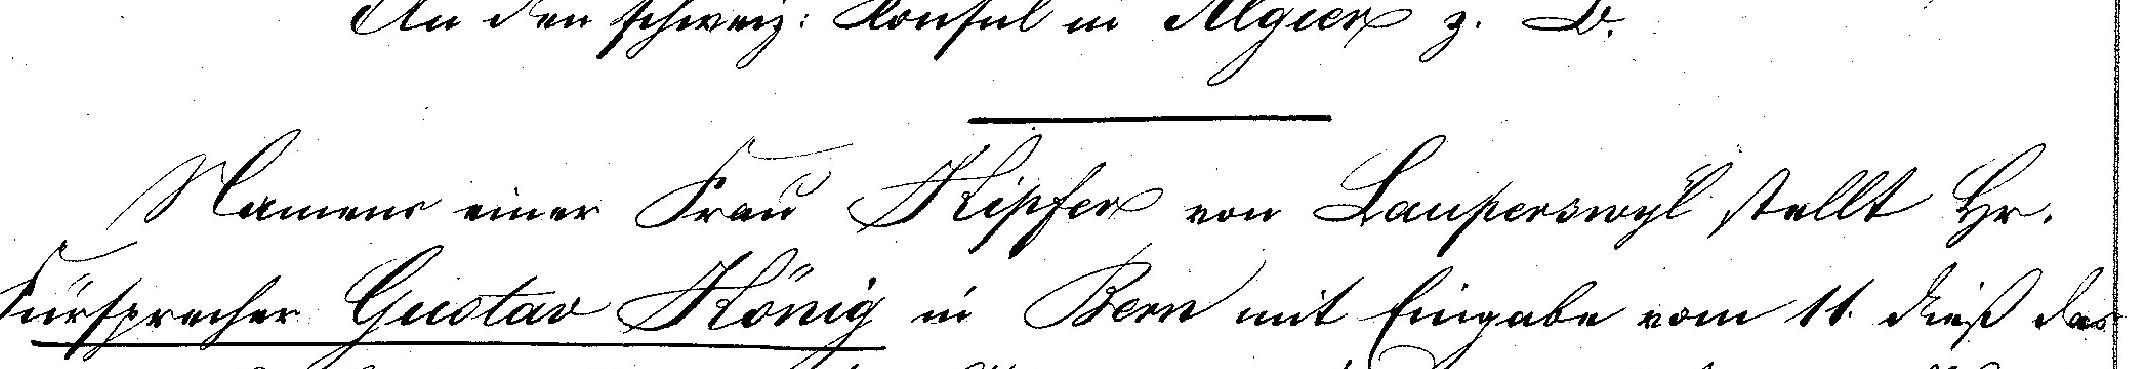 An den schweiz: Konsul in Algier z. B.
Namens einer Frau Kipfer von Lauperswyl stellt Hr.
Fürsprecher Gustav König in Bern mit Eingabe vom 11. dieß das